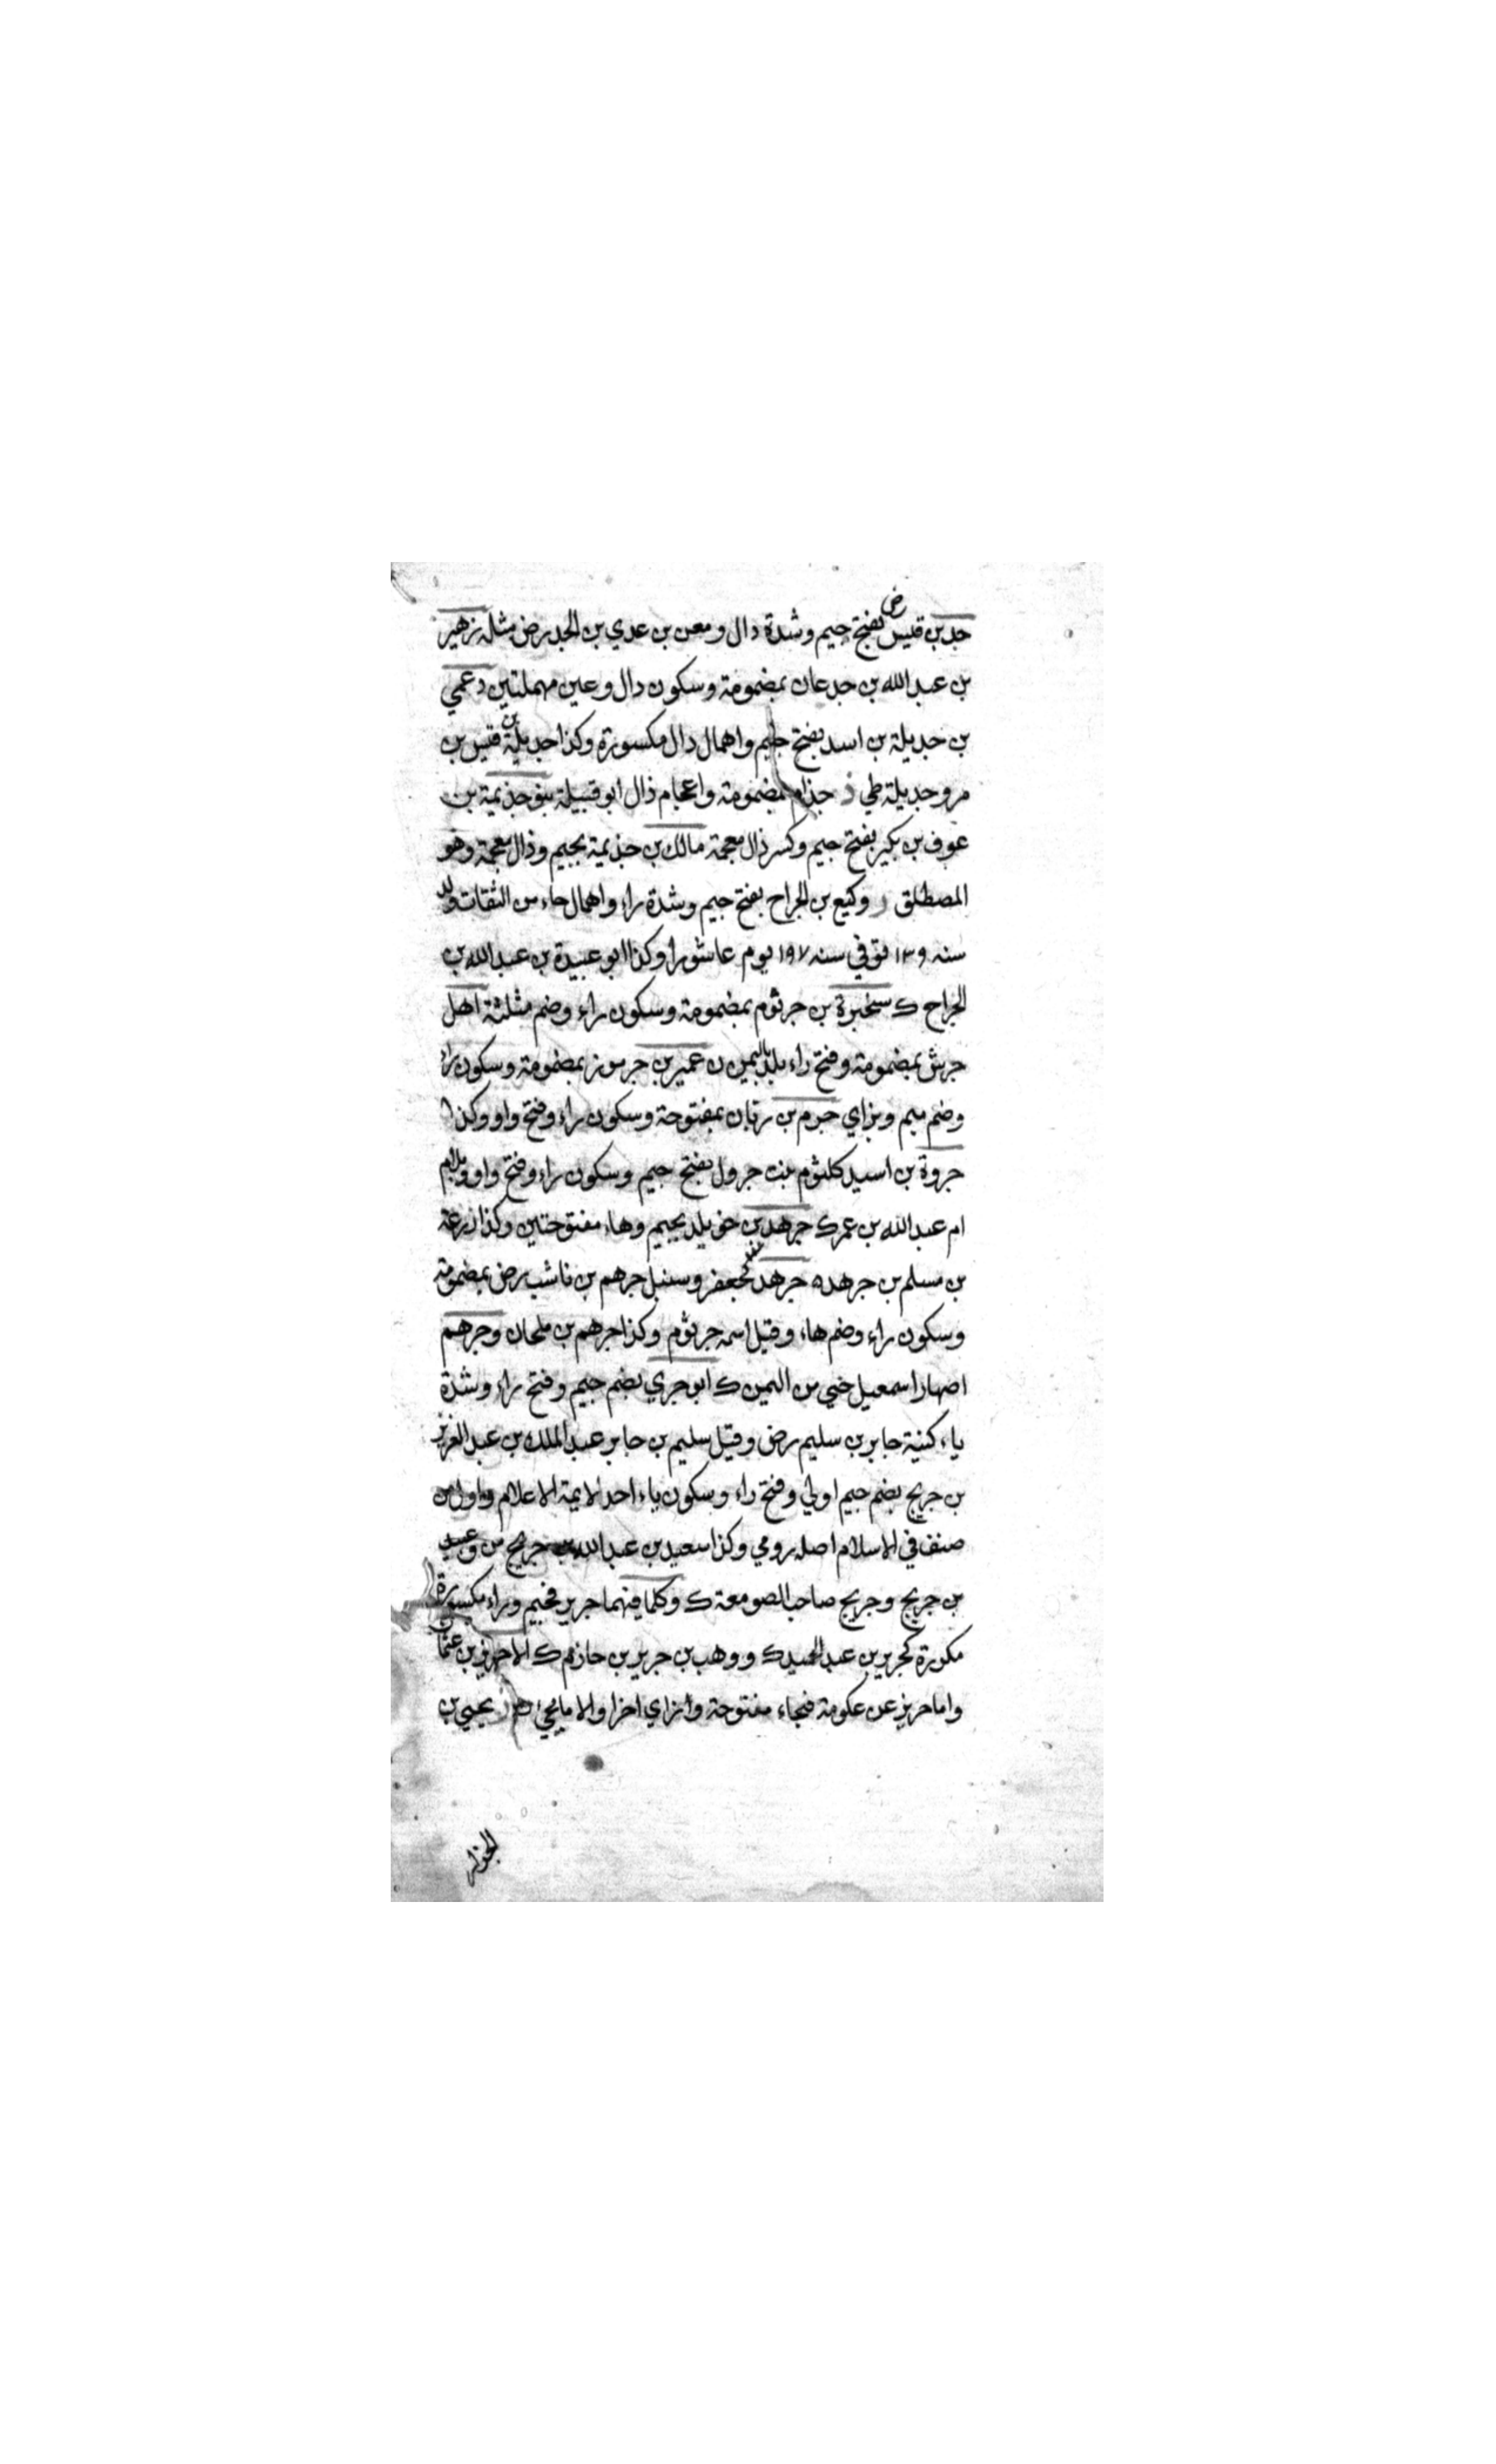 جد بن قيس رض بفتح جيم وشدة دال ومعن بن عدي بن الجد رض مثله زهير
بن عبد الله بن جدعان بمضمومة وسكون دال وعين مهملتين دعمي
بن جديلة بن اسد بفتح جيم واهمال دال مكسورة وكذا جديلة بن قيس بن
مر وجديلة طي ذ جذام بمضمومة واعجام ذال ابو قبيلة بنو جذيمة بن
عوف بن بكير بفتح جيم وكسر ذال معجمة مالك بن جذيمة بجيم وذال معجمة وهو
المصطلق ر وكيع بن الجراح بفتح جيم وشدة راء واهمال حاء من الثقات ولد
سنه ١٣٩ توفي سنه ١٩٧ يوم عاشورا وكذا ابو عبيدة بن عبد الله بن
الجراح ك سخبرة بن جرثوم بمضمومة وسكون راء وضم مثلثة اهل
جرش بمضمومة وفتح راء بلد باليمن ن عمير بن جرموز بمضمومة وسكون راء
وضم ميم وبزاي جرم بن زبان بمفتوحة وسكون راء وفتح واو وكذا
جروة بن اسيد كلثوم بنت جرول بفتح جيم وسكون راء وفتح واو وبلام
ام عبد الله بن عمر ك جرهد بن خويلد بجيم وهاء مفتوحتين وكذا زرعة
بن مسلم بن جرهد ه جرهد كجعفر وسنبل جرهم بن ناشب رض بمضمومة
وسكون راء وضم هاء وقيل اسمه جرثوم وكذا جرهم بن ملحان وجرهم
اصهار اسمعيل حي من اليمن ك ابو جري بضم جيم وفتح راء وشدة
ياء كنية جابر بن سليم رض وقيل سليم بن جابر عبد الملك بن عبد العزيز
بن جريج بضم جيم اولي وفتح راء وسكون ياء احد الايمة الاعلام واول من
صنف في الاسلام اصله رومي وكذا سعيد بن عبد الله بن جريج من وعبيد
بن جريج وجريج صاحب الصومعة ك وكلما فيهما جرير فجيم وراء مكسورة
مكررة كجرير بن عبد الحميد ك ووهب بن جرير بن حازم ك الا حريز بن عثمان
واما حريز عن عكرمة فبحاء مفتوحة وزاي اخرا والا ما يجئ يحيي بن
الجزار